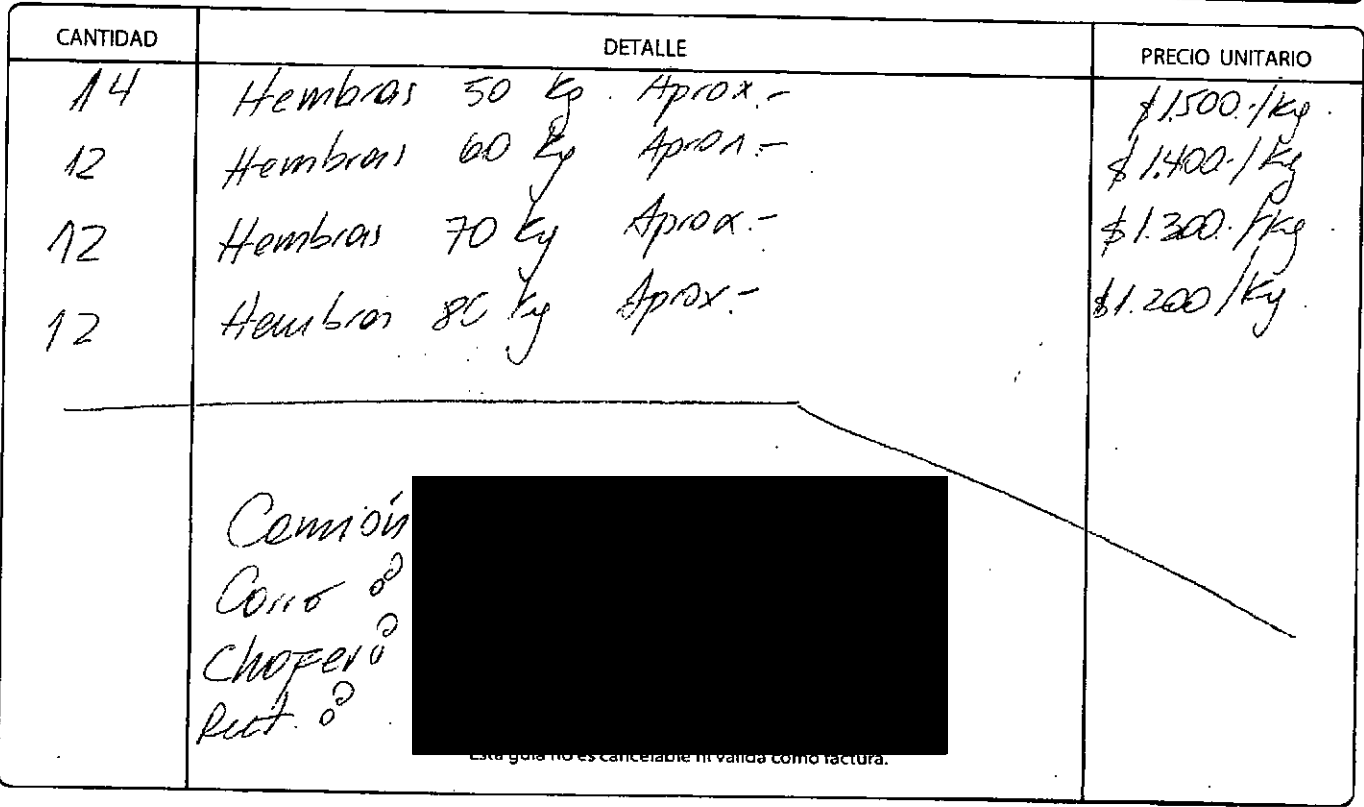 CANTIDAD DETALLE PRECIO UNITARIO
14 Hembras 50 Kg. Aprox.- $1.500.-/Kg.
12 Hembras 60 Kg Aprox.- $1.400.-/Kg
12 Hembras 70 Kg Aprox.- $1.300.-/Kg.
12 Hembras 80 Kg Aprox.- $1.200/Kg.
Camión
Carro :
Chofer :
Rut. :
Esta guía no es cancelable ni válida como factura.